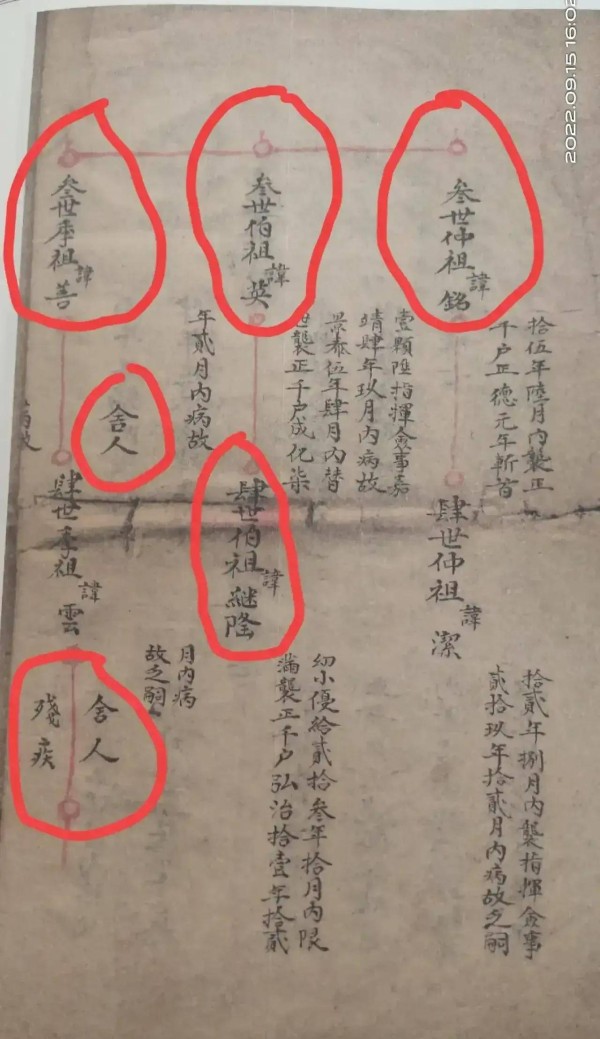 2022.09.15 16:02
叁世仲祖諱銘
拾伍年陸月內襲正
千户正德元年斬首
肆世仲祖諱潔
拾貳年捌月內襲指揮僉事
貳拾玖年拾貳月內病故乏嗣
叁世伯祖諱英
壹顆陞指揮僉事嘉
靖肆年玖月內病故
景泰伍年肆月內替
世襲正千户成化柒
年貳月內病故
肆世伯祖諱継隆
幼小優給貳拾叁年拾月內限
滿襲正千户弘治拾壹年拾貳
月內病
故乏嗣
叁世季祖諱善
舎人
病故
肆世季祖諱雲
舎人
殘疾